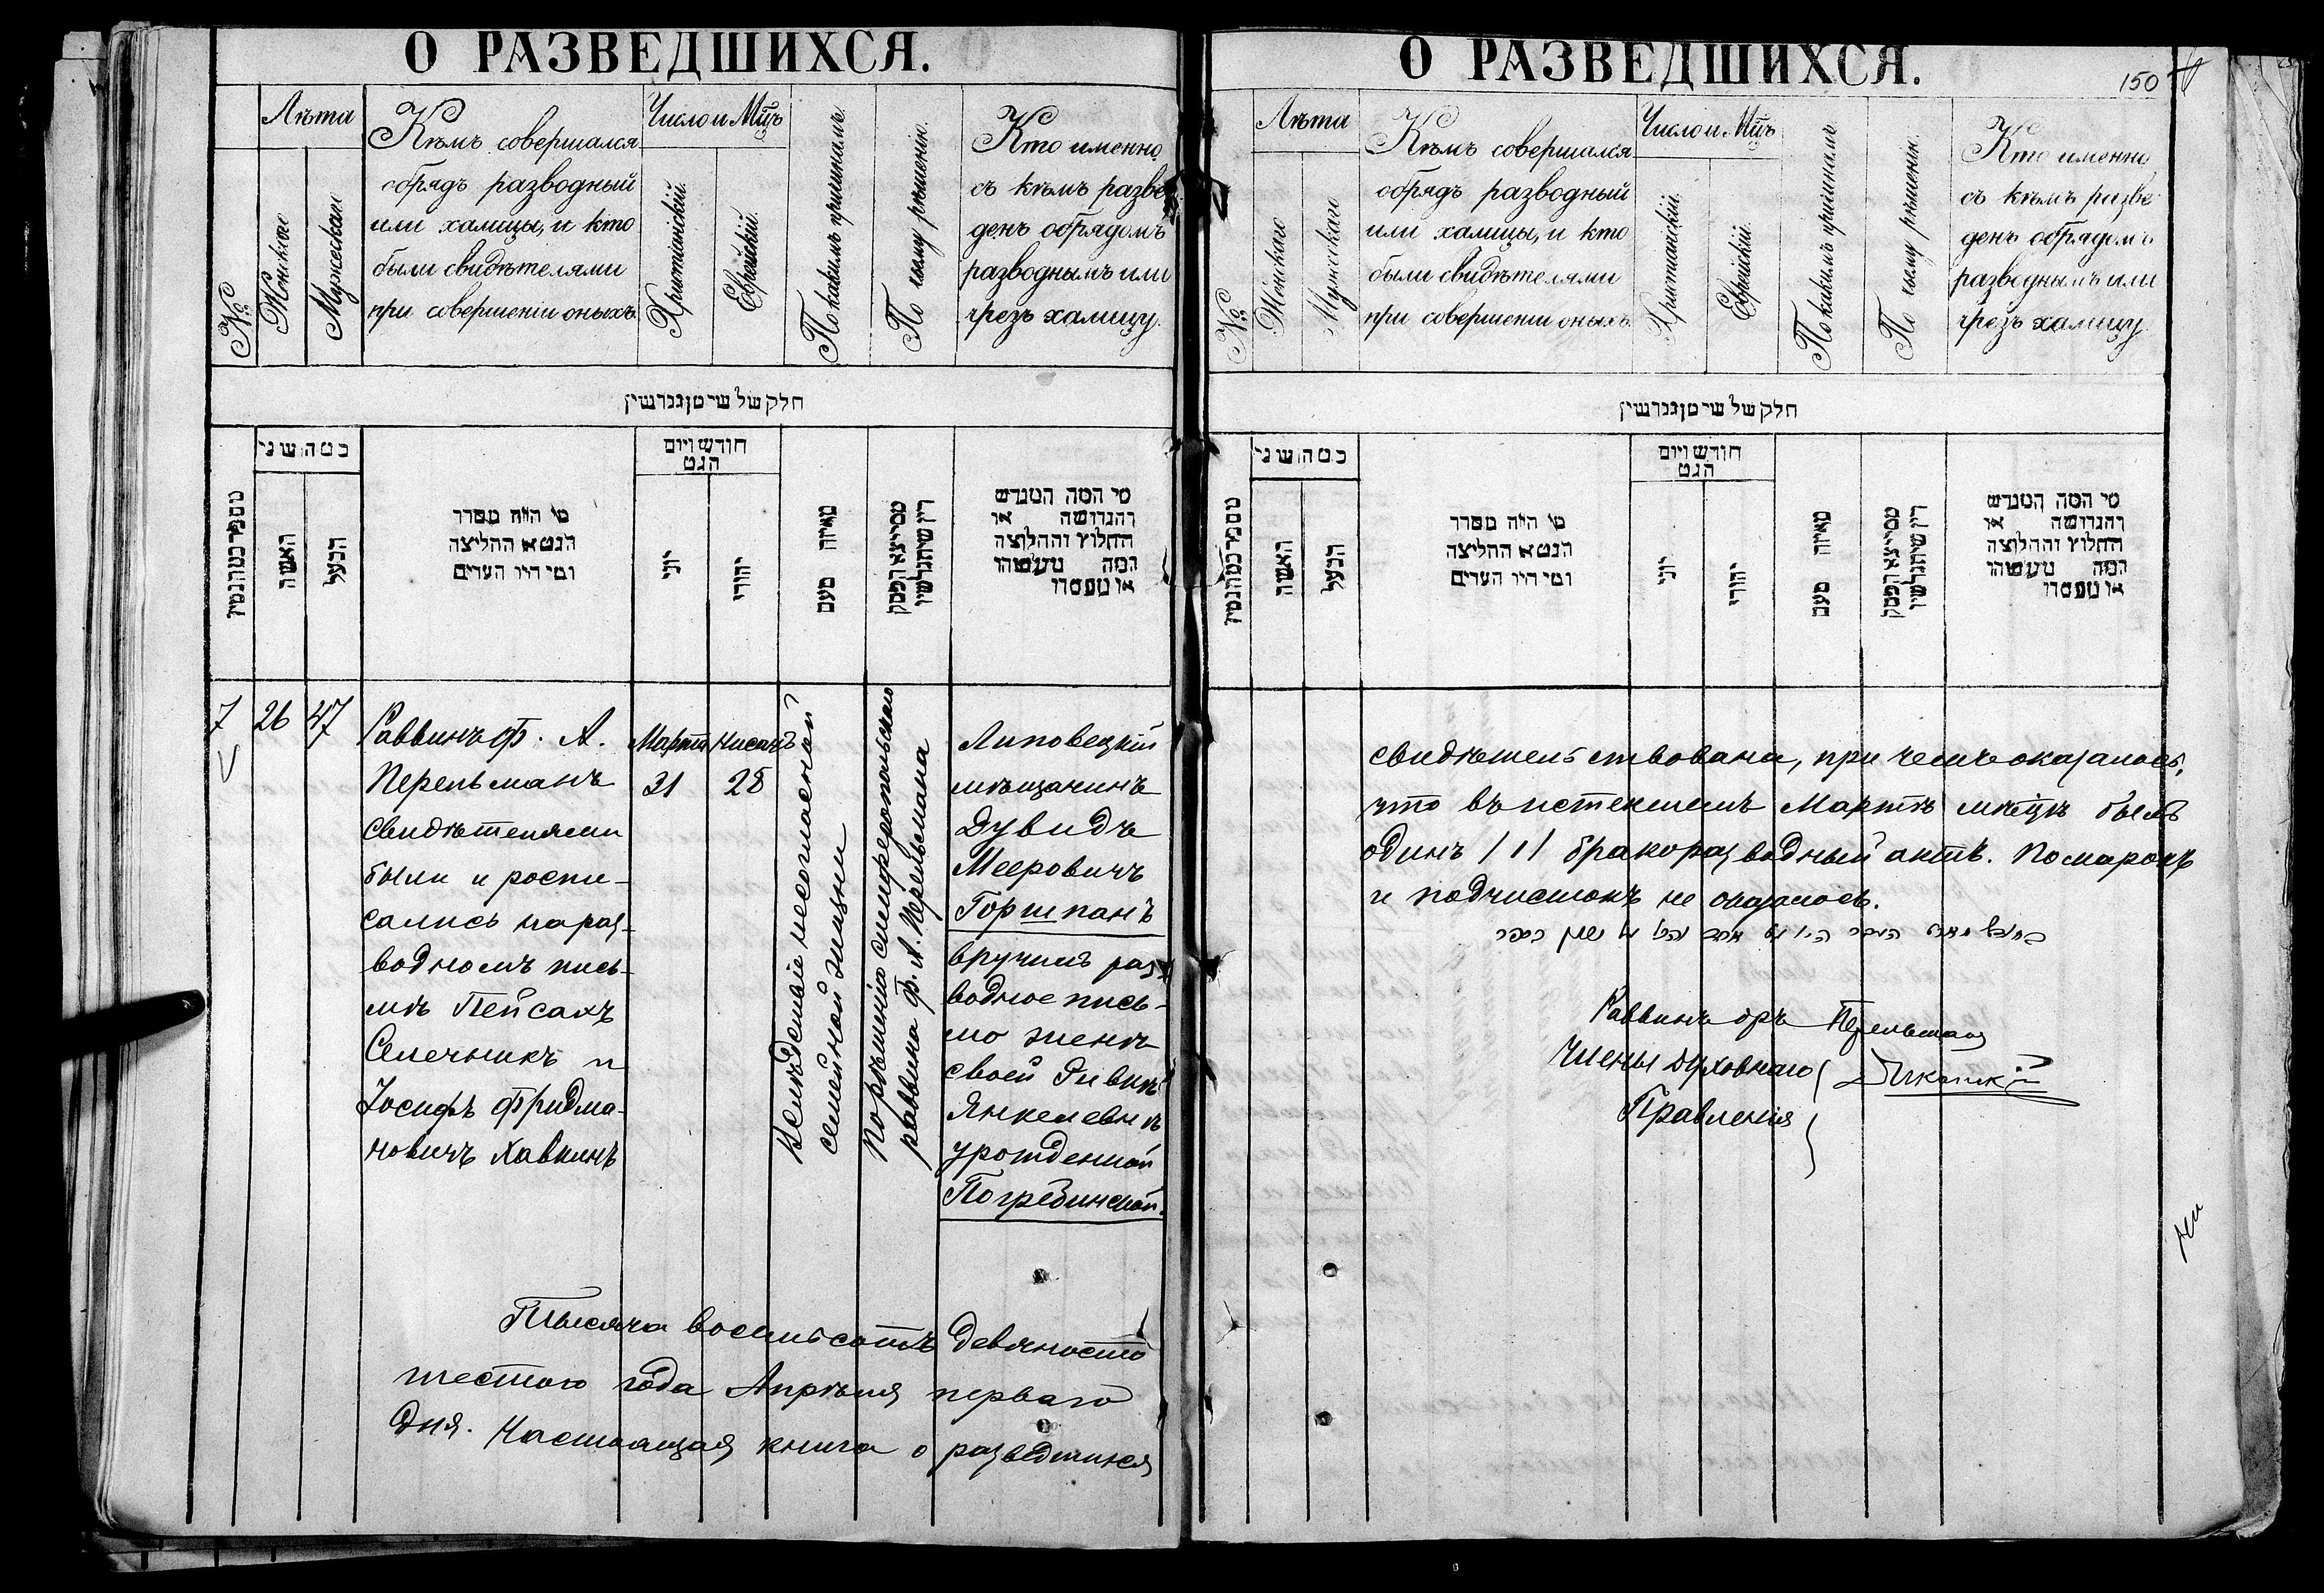 О РАЗВЕДШИХСЯ.
№
Лѣта
Женскаго
Мужескаго
Кѣмъ совершался
обрядъ разводный
или халицы, и кто
были свидѣтелями
при совершеніи оныхъ.
Число и Мц̃ъ
Христіанскій.
Еврейскій.
По какимъ причинамъ.
По чьему рѣшенію.
Кто именно
съ кѣмъ разве
денъ обрядомъ
разводнымъ или
чрезъ халицу.
חלק של שטן גרושין
האשה
הבעל
מי היה מסדר
הגט או החליצה
ומי היו העדים
חודש ויום
הגט
יוני
יהודי
מאיזה טעם
7
26
47
Раввинъ Ф. А.
Перельманъ
свидѣтелями
были и роспи-
сались на раз-
водномъ пись-
мѣ Пейсахъ
Семечникъ и
Іосифъ Фридма-
новичъ Хавкинъ
Марта
31
Нисанъ
28
Вслѣдствіе несогласной
семейной жизни
По рѣшенію Симферопольскаго
раввина Ф. А. Перельмана
Липовецкій
мѣщанинъ
Дувидъ
Мееровичъ
Горшпанъ
вручилъ раз-
водное пись-
мо женѣ
своей Ривкѣ
Янкелевнѣ
урожденной
Погребинской.
Тысяча восемьсотъ девяносто
шестого года Апрѣля перваго
дня. Настоящая книга о разведшихся
О РАЗВЕДШИХСЯ.
150
№
Лѣта
Женскаго
Мужескаго
Кѣмъ совершался
обрядъ разводный
или халицы, и кто
были свидѣтелями
при совершеніи оныхъ.
Число и Мц̃ъ
Христіанскій.
Еврейскій.
По какимъ причинамъ.
По чьему рѣшенію.
Кто именно
съ кѣмъ разве
денъ обрядомъ
разводнымъ или
чрезъ халицу.
חלק של שטן גרושין
האשה
הבעל
מי היה מסדר
הגט או החליצה
ומי היו העדים
חודש ויום
הגט
יוני
יהודי
מאיזה טעם
свидѣтельствована, при чемъ оказалось,
что въ истекшемъ Мартѣ мѣсяцѣ былъ
одинъ /1/ бракоразводный актъ. Помарокъ
и подчистокъ не оказалось.
Раввинъ Ѳръ Перельманъ
Члены Духовнаго
Правленія